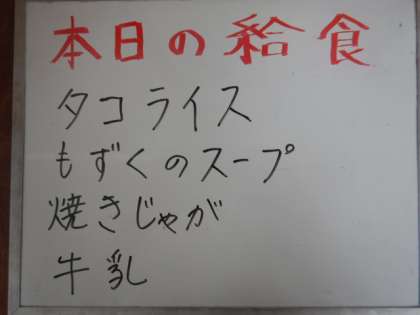 本日の給食
タコライス
もずくのスープ
焼きじゃが
牛乳